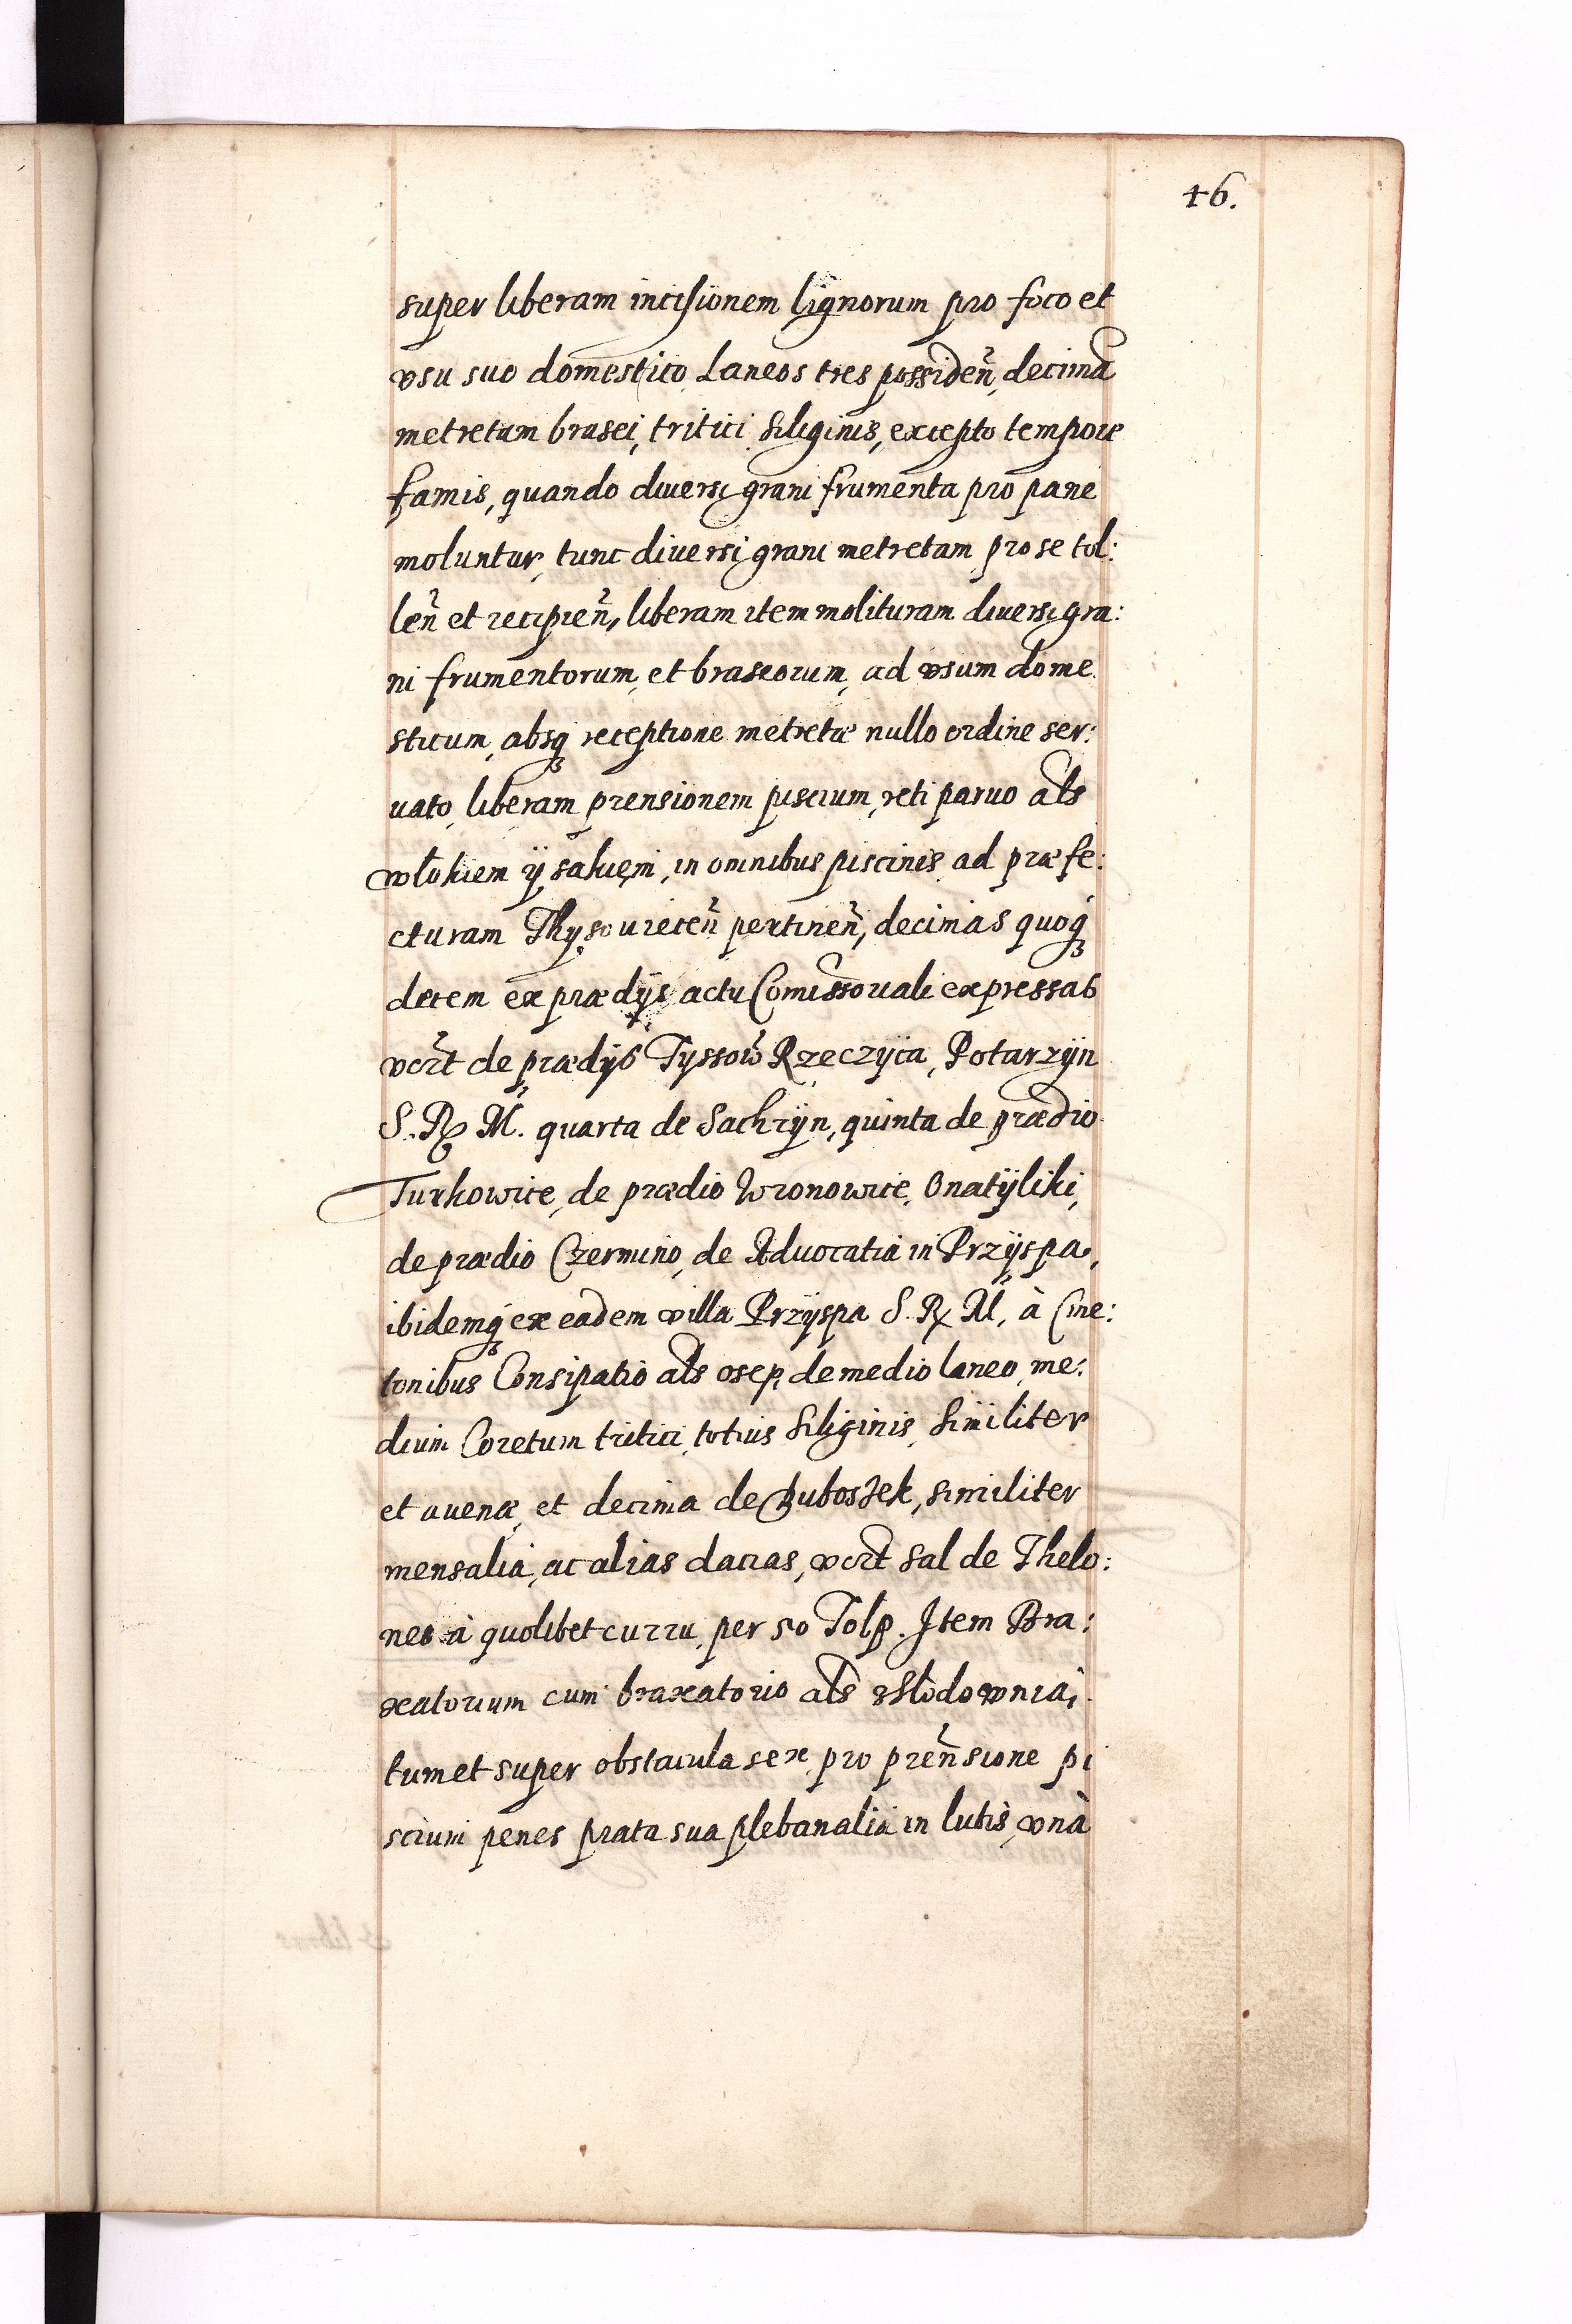 46.
super liberam incisionem lignorum pro foco et
vsu suo domestico, Laneos tres possiden̄, decimā
metretam brasei, tritici, Siliginis, excepto tempore
famis, quando diuersi grani frumenta pro pane
moluntur, tunc diuersi grani metretam pro se tol:
len̄ et recipien̄, liberam item molituram diuersi gra:
ni frumentorum, et braseorum, ad vsum dome
sticum, absq̨ receptione metretæ nullo ordine ser:
uato, liberam prensionem piscium, reti paruo als
włokiem ÿ sakiem, in omnibus piscinis ad præfe:
cturam Thyssouiecen̄ pertinen̄, decimas quoq̨
decem ex prædÿs actu Com̄issouali expressas
vĉrt de prædÿs Tyssow̄ Rzeczÿca, Potarzÿn
S. R. M. quarta de Sachrÿn, quinta de prædio
Turkowice, de prædio Wronowice, Onatÿliki,
de prædio Czermino, de Aduocatia in Przÿspa,
ibidemq̨ ex eadem villa Przÿspa S. R. M. à Cme:
tonibus Consipatio als osep, de medio laneo, me:
dium Coretum tritici, totius Siliginis, Similiter
et auenæ, et decima de similiter
mensalia, ac alias dacias, vĉrt Sal de Thelo:
neo à quolibet curru, per 50 Tolp. Item Bra:
xatorium cum braxatorio als słodownia,
tum et super obstacula sex pro pren̄sione pi
scium penes prata sua plebanalia in lutis, vnà